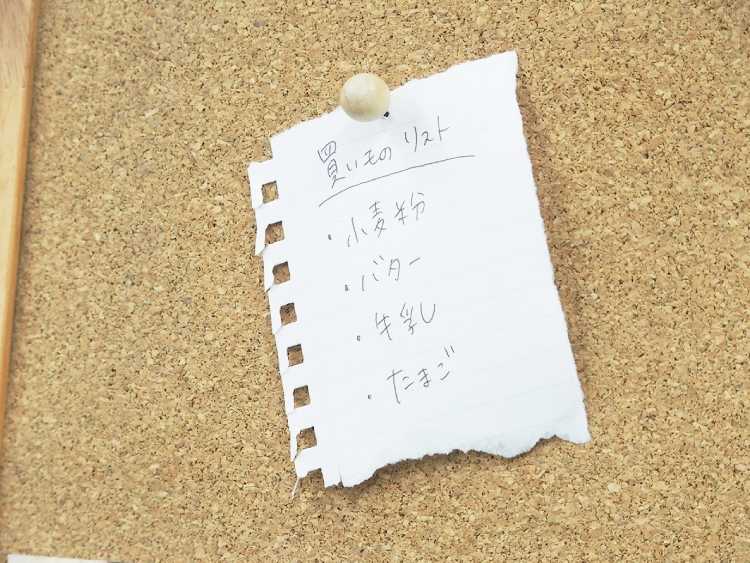 買いものリスト
・小麦粉
・バター
・牛乳
・たまご